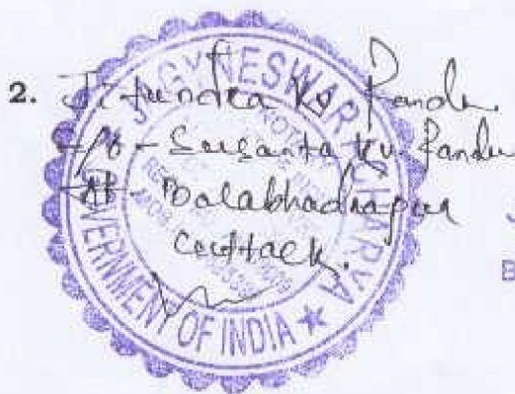 2. Jitendra Ku Panda
S/o - Susanta Ku. Panda
At - Balabhadrapur
Cuttack.
JAGYNESWAR ACHARYA
GOVERNMENT OF INDIA ★